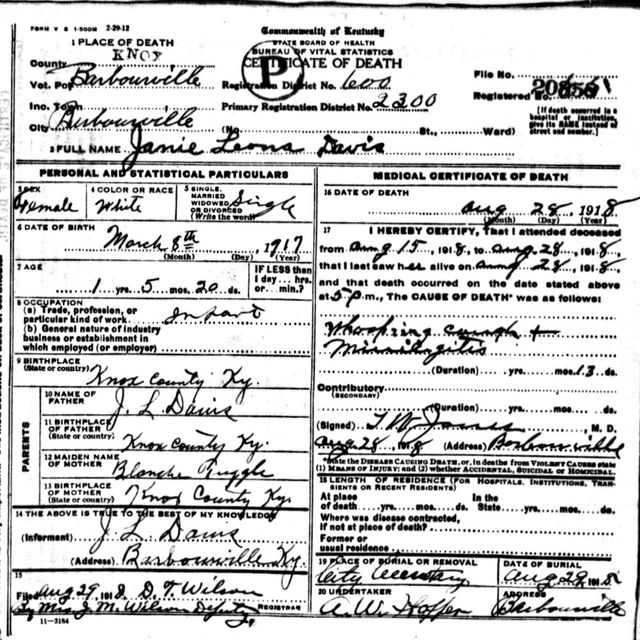 FORM V S 1-500M 2-29-12
Commonwealth of Kentucky
STATE BOARD OF HEALTH
BUREAU OF VITAL STATISTICS
CERTIFICATE OF DEATH
1 PLACE OF DEATH
County KNOX
Vot. Pct. Barbourville
Inc. Town Barbourville
City
P
Registration District No. 600
Primary Registration District No. 2300
File No.
Registered No.
[If death occurred in a hospital or institution, give its NAME instead of street and number.]
(No. St., Ward)
2 FULL NAME Janie Leona Davis
PERSONAL AND STATISTICAL PARTICULARS
3 SEX Female
4 COLOR OR RACE White
5 SINGLE, MARRIED WIDOWED OR DIVORCED (Write the word) Single
6 DATE OF BIRTH March 8th, 1917
(Month) (Day) (Year)
7 AGE 1 yrs. 5 mos. 20 ds.
IF LESS than 1 day... hrs. or... min.?
8 OCCUPATION
(a) Trade, profession, or particular kind of work Infant
(b) General nature of industry business or establishment in which employed (or employer)
9 BIRTHPLACE (State or country) Knox County Ky.
PARENTS
10 NAME OF FATHER J. L. Davis
11 BIRTHPLACE OF FATHER (State or country) Knox County Ky.
12 MAIDEN NAME OF MOTHER Blanche Tuggle
13 BIRTHPLACE OF MOTHER (State or country) Knox County Ky.
14 THE ABOVE IS TRUE TO THE BEST OF MY KNOWLEDGE
(Informant) J. L. Davis
(Address) Barbourville Ky.
15
Filed Aug 29 1918 D. T. Wilson
By Mrs. J. M. Wilson Deputy, REGISTRAR
11-3184
MEDICAL CERTIFICATE OF DEATH
16 DATE OF DEATH Aug 28, 1918
(Month) (Day) (Year)
17 I HEREBY CERTIFY, That I attended deceased
from Aug 15, 1918, to Aug 28, 1918,
that I last saw her alive on Aug 28, 1918,
and that death occurred on the date stated above
at 5 P m., The CAUSE OF DEATH* was as follows:
Whooping cough +
Minningitis
(Duration) yrs. mos. 13 ds.
Contributory
(SECONDARY)
(Duration) yrs. mos. ds.
(Signed) T. W. Jones, M. D.
Aug 28 1918 (Address) Barbourville
*State the DISEASE CAUSING DEATH, or, in deaths from VIOLENT CAUSES state (1) MEANS OF INJURY; and (2) whether ACCIDENTAL, SUICIDAL or HOMICIDAL.
18 LENGTH OF RESIDENCE (FOR HOSPITALS, INSTITUTIONS, TRANSIENTS OR RECENT RESIDENTS)
At place of death yrs. mos. ds. In the State yrs. mos. ds.
Where was disease contracted, if not at place of death?
Former or usual residence
19 PLACE OF BURIAL OR REMOVAL City
DATE OF BURIAL Aug 29, 1918
20 UNDERTAKER A. W. Hopper
ADDRESS Barbourville